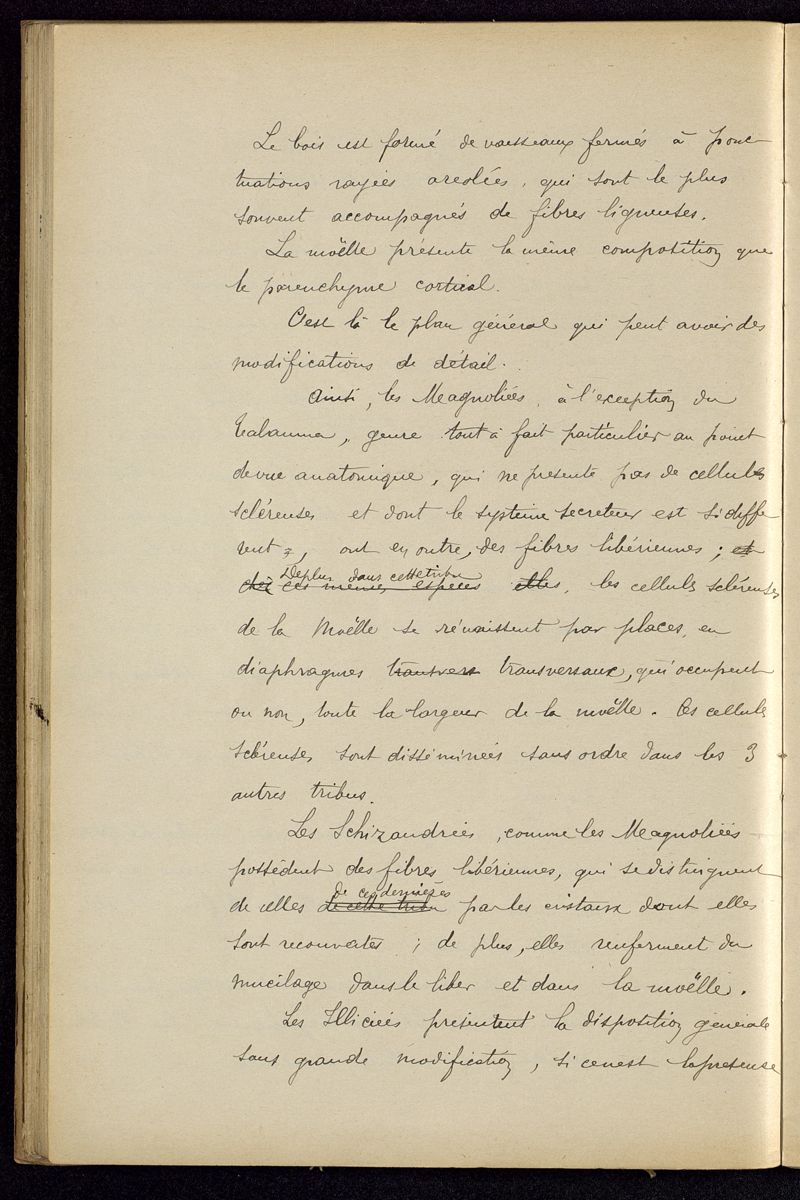 Le bois est formé de vaisseaux fermés à ponc
tuations rayées areolées, qui sont le plus
souvent accompagnés de fibres ligneuses.
La moëlle présente la même composition que
le parenchyme cortical.
C'est là le plan général qui peut avoir des
modifications de détail.
Ainsi, les Magnoliées, à l'exception du
Talauma, genre tout à fait particulier au point
de vue anatomique, qui ne presente pas de cellules
scléreuses et dont le systeme secreteur est si diffe
rent, ont en outre, des fibres libériennes; et
De plus, dans cette tribu
chez ces mêmes espèces elles, les cellules scléreuses
de la Moëlle se réunissent par places, en
diaphragmes transvers transversaux, qui occupent
ou non, toute la largeur de la moëlle. Ces cellules
scléreuses sont disséminées sans ordre dans les 3
autres tribus.
Les Schizandrées, comme les Magnoliées
possèdent des fibres libériennes, qui se distinguent
de ces dernières
de celles de cette tribu par les cristaux dont elles
sont recouvertes ; de plus, elles renferment du
mucilage dans le liber et dans la moëlle.
Les Illiciées présentent la disposition générale
sans grande modification, si ce n'est la présence